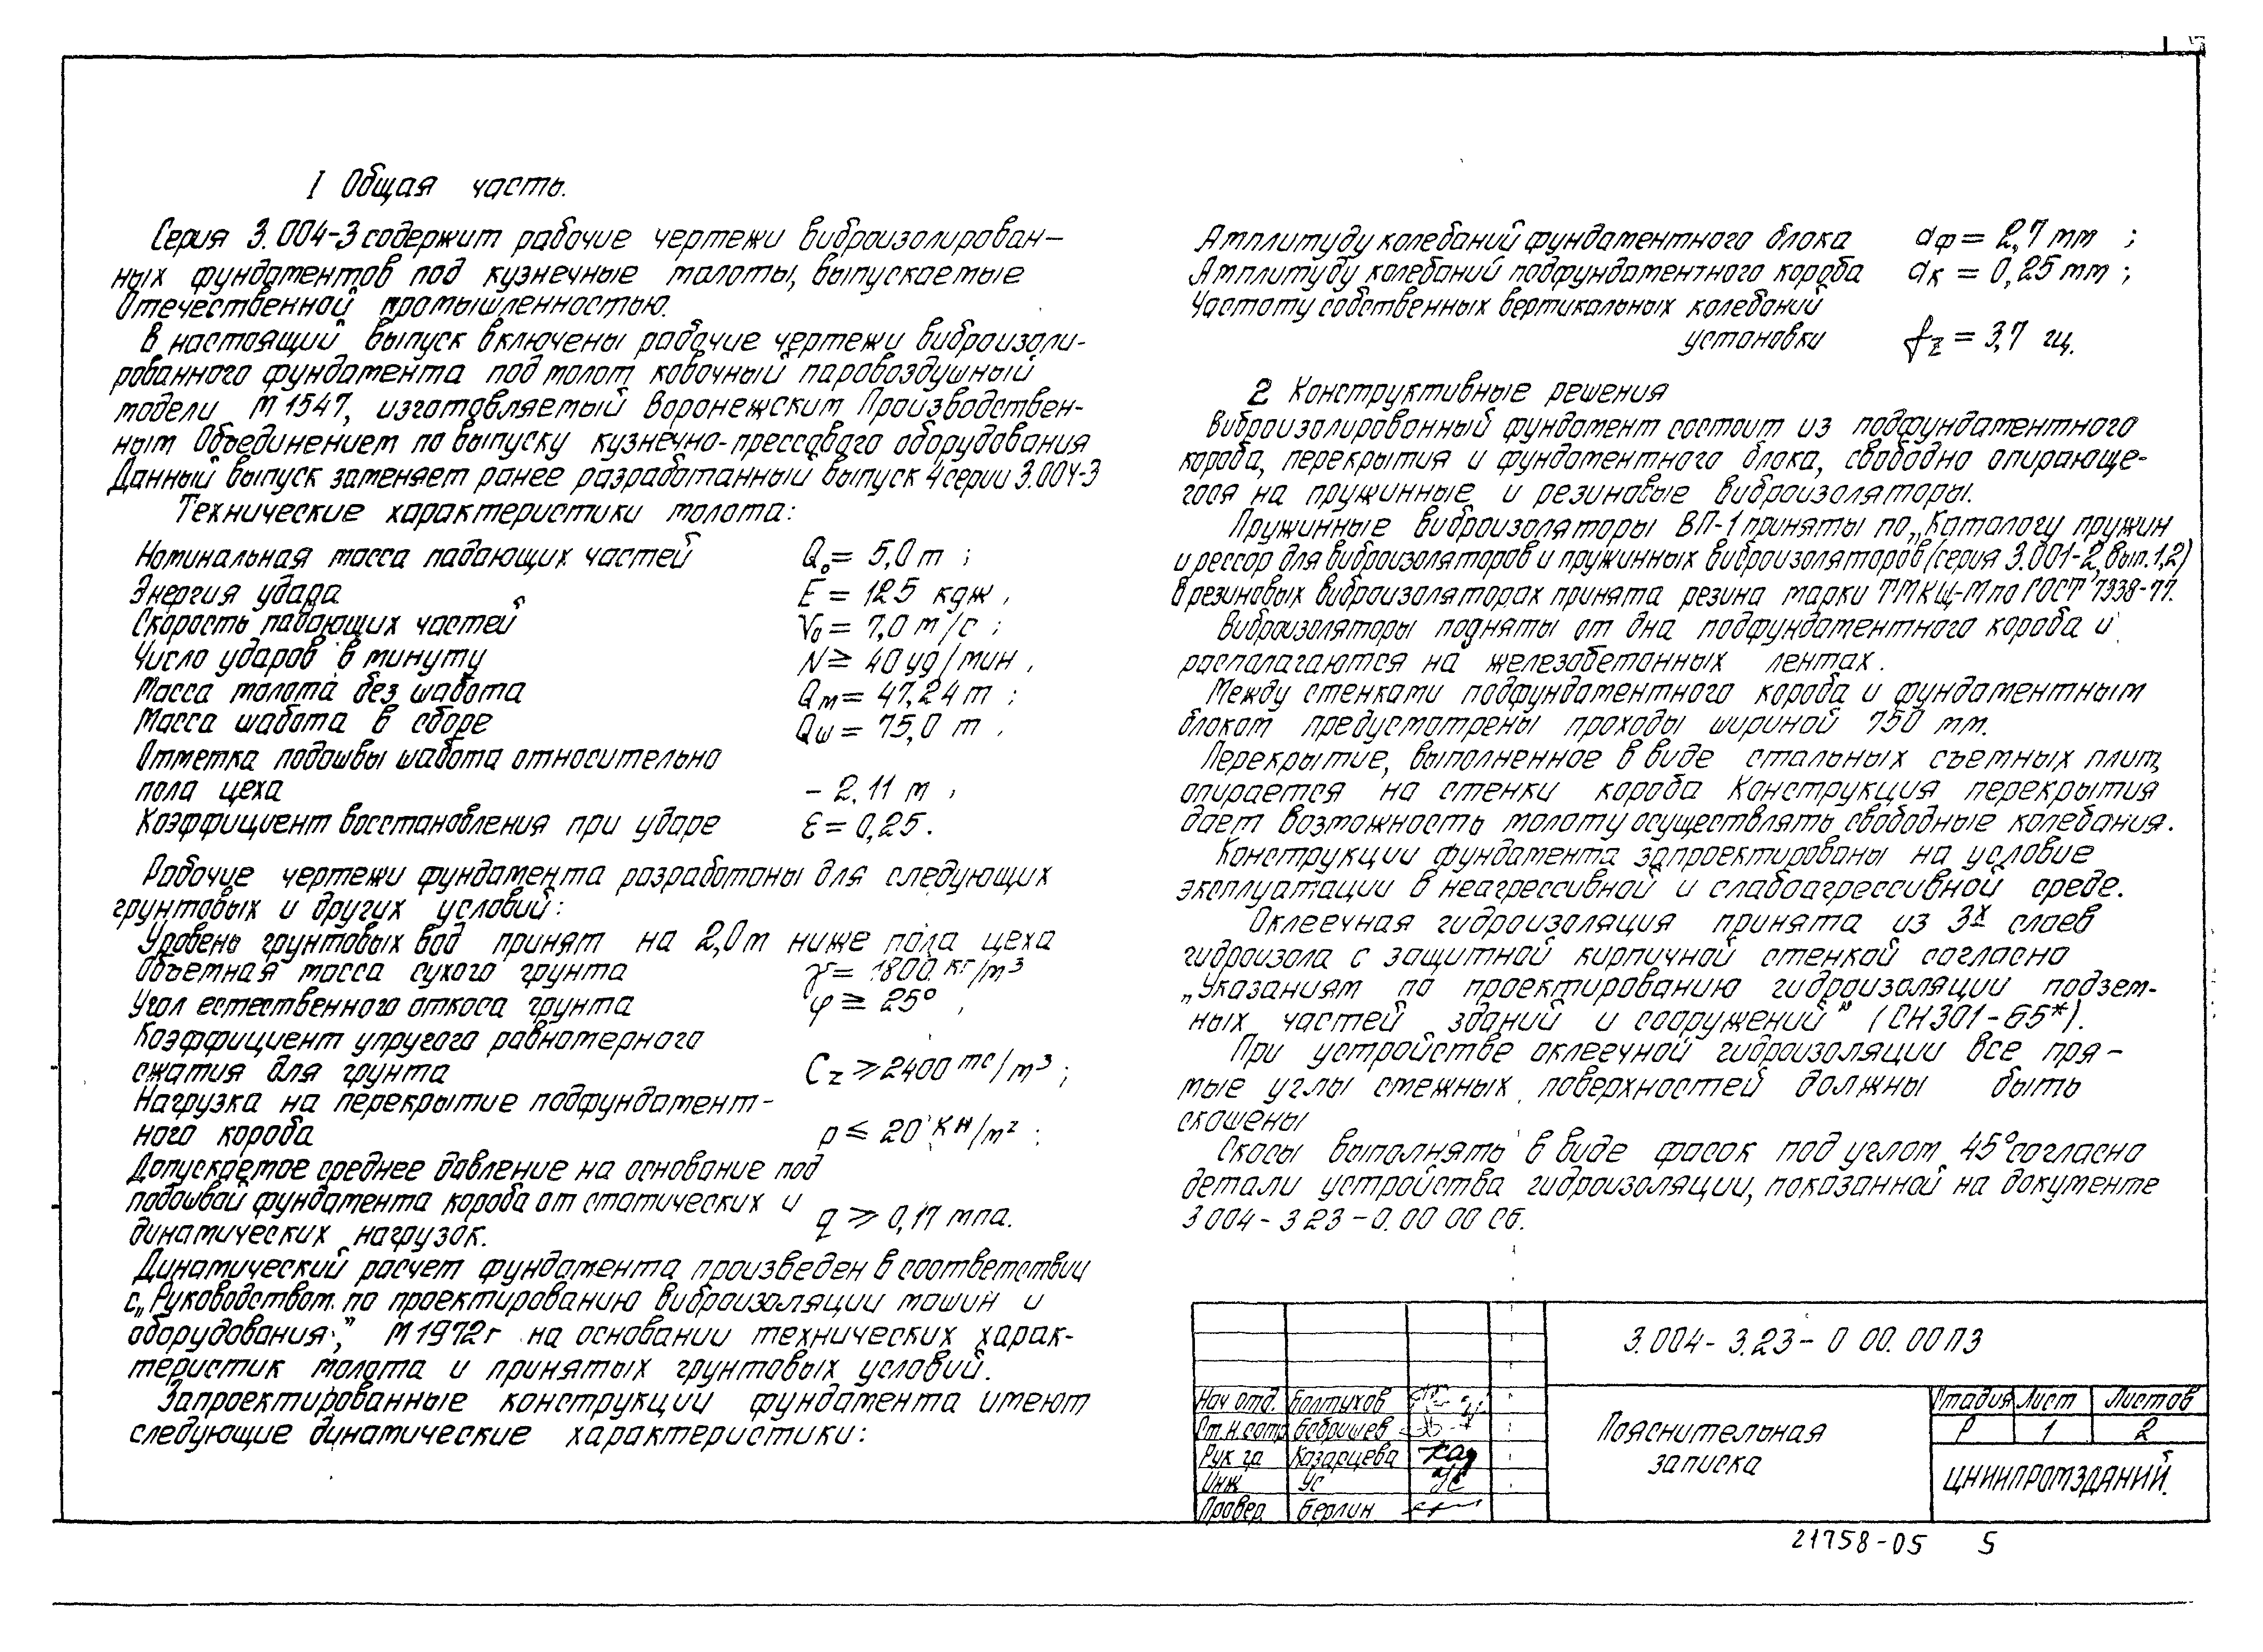 I Общая часть.
Серия 3.004-3 содержит рабочие чертежи виброизолирован-
ных фундаментов под кузнечные молоты, выпускаемые
Отечественной промышленностью.
В настоящий выпуск включены рабочие чертежи виброизоли-
рованного фундамента под молот ковочный паровоздушный
модели М1547, изготовляемый Воронежским Производствен-
ным Объединением по выпуску кузнечно-прессового оборудования
Данный выпуск заменяет ранее разработанный выпуск 4 серии 3.004-3
Технические характеристики молота:
Номинальная масса падающих частей Q₀ = 5,0 т ;
Энергия удара E = 125 кдж ,
Скорость падающих частей V₀ = 7,0 м/с ;
Число ударов в минуту N ≥ 40 уд/мин ,
Масса молота без шабота Qм = 47,24 т ;
Масса шабота в сборе Qш = 75,0 т ,
Отметка подошвы шабота относительно
пола цеха - 2.11 м ,
Коэффициент восстановления при ударе ε = 0,25.
Рабочие чертежи фундамента разработаны для следующих
грунтовых и других условий:
Уровень грунтовых вод принят на 2,0м ниже пола цеха
Объемная масса сухого грунта γ = 1800 кг/м³
Угол естественного откоса грунта φ ≥ 25° ,
Коэффициент упругого равномерного
сжатия для грунта Cz ≥ 2400 тс/м³ ;
Нагрузка на перекрытие подфундамент-
ного короба p ≤ 20 КН/м² ;
Допускаемое среднее давление на основание под
подошвой фундамента короба от статических и
динамических нагрузок. q ≥ 0,17 мпа.
Динамический расчет фундамента произведен в соответствии
с „Руководством по проектированию виброизоляции машин и
оборудования", М 1972г на основании технических харак-
теристик молота и принятых грунтовых условий.
Запроектированные конструкции фундамента имеют
следующие динамические характеристики:
Амплитуду колебаний фундаментного блока aф = 2,7 мм ;
Амплитуду колебаний подфундаментного короба aк = 0,25 мм ;
Частоту собственных вертикальных колебаний
установки fz = 3,7 гц.
2 Конструктивные решения
Виброизолированный фундамент состоит из подфундаментного
короба, перекрытия и фундаментного блока, свободно опирающе-
гося на пружинные и резиновые виброизоляторы.
Пружинные виброизоляторы ВП-1 приняты по „Каталогу пружин
и рессор для виброизоляторов и пружинных виброизоляторов (серия 3.001-2, вып.1,2)
В резиновых виброизоляторах принята резина марки ТМКЩ-М по ГОСТ 7338-77.
Виброизоляторы подняты от дна подфундаментного короба и
располагаются на железобетонных лентах.
Между стенками подфундаментного короба и фундаментным
блоком предусмотрены проходы шириной 750 мм.
Перекрытие, выполненное в виде стальных съемных плит,
опирается на стенки короба Конструкция перекрытия
дает возможность молоту осуществлять свободные колебания.
Конструкции фундамента запроектированы на условие
эксплуатации в неагрессивной и слабоагрессивной среде.
Оклеечная гидроизоляция принята из 3х слоев
гидроизола с защитной кирпичной стенкой согласно
„Указаниям по проектированию гидроизоляции подзем-
ных частей зданий и сооружений" (СН301-65*).
При устройстве оклеечной гидроизоляции все пря-
мые углы смежных поверхностей должны быть
скошены
Скосы выполнять в виде фасок под углом 45° согласно
детали устройства гидроизоляции, показанной на документе
3 004-3 23-0. 00 00 СБ.
3.004-3.23-0 00. 00 ПЗ
Нач отд. Болтухов
Ст.н.сотр Бабришев
Рук гр Казарцева
Инж Ус
Провер Берлин
Пояснительная
записка
Стадия Лист Листов
Р 1 2
ЦНИИПРОМЗДАНИЙ
21758-05 5